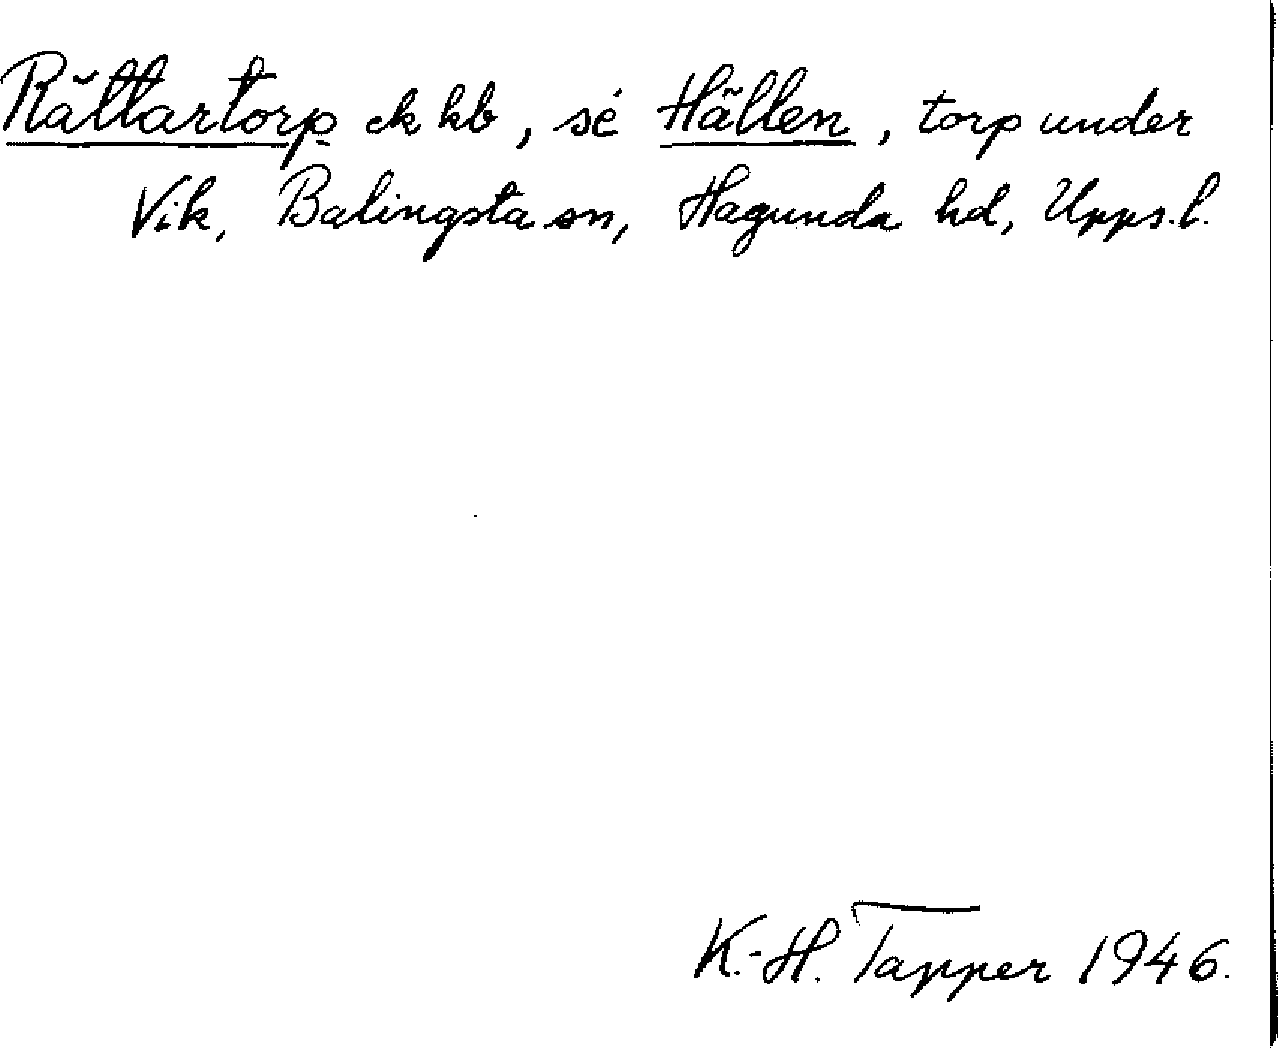 Rättartorp ek kb, sé Hällen, torp under
Vik, Balingsta sn, Hagunda hd, Upps. l.
K.-H. Tapper 1946.